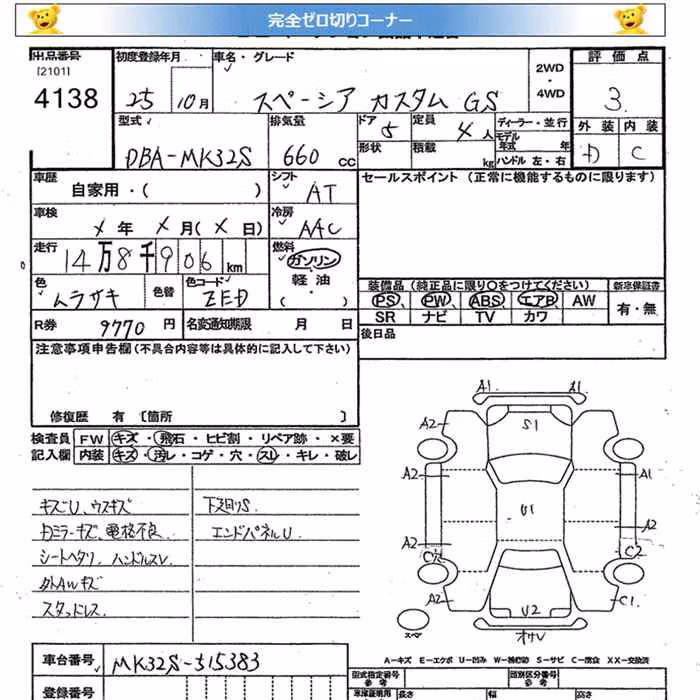 完全ゼロ切りコーナー
出品番号 初度登録年月 車名・グレード 2WD・4WD 評価点
[2101]
4138 25 10月 スペーシア カスタム GS 3
型式 排気量 ドア 5 定員 4人 ディーラー・並行 外装 内装
DBA-MK32S 660cc 形状 積載 kg モデル年式 年 ハンドル 左・右 D C
車歴 自家用・( ) シフト AT セールスポイント (正常に機能するものに限ります)
車検 X年 X月 (X日) 冷房 AAC
走行 14万8千906km 燃料 ガソリン 軽油 ・( )
色 ムラサキ 色替 色コード ZED
装備品 (純正品に限り○をつけてください) 新車保証書
PS PW ABS エアB AW 有・無
SR ナビ TV カワ
R券 9770円 名変通知期限 月 日 後日品
注意事項申告欄(不具合内容等は具体的に記入して下さい)
修復歴 有 [箇所 ]
検査員 FW キズ・飛石・ヒビ割・リペア跡・×要
記入欄 内装 キズ・汚レ・コゲ・穴・スレ・キレ・破レ
キズU、ウスキズ
Dミラーキズ、電格不良
シートヘタリ、ハンドルスレ
外AWキズ
スタッドレス
下廻りS
エンドパネルU
A1 A1
A2 S1 A2
A2 A1
U1
A2 A2
C穴 C2
A2 U2 C1
スペア オサレ
A-キズ E-エクボ U-凹み W-補修跡 S-サビ C-腐食 XX-交換済
車台番号 MK32S-515383 型式指定番号 参考 類別区分番号 参考
登録番号 車庫証明用 参考 長さ 幅 高さ